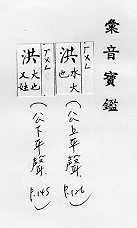 彙音寶鑑
洪 水大也
(公上平聲 P.126)
洪 大也又姓
(公下平聲 P.145)